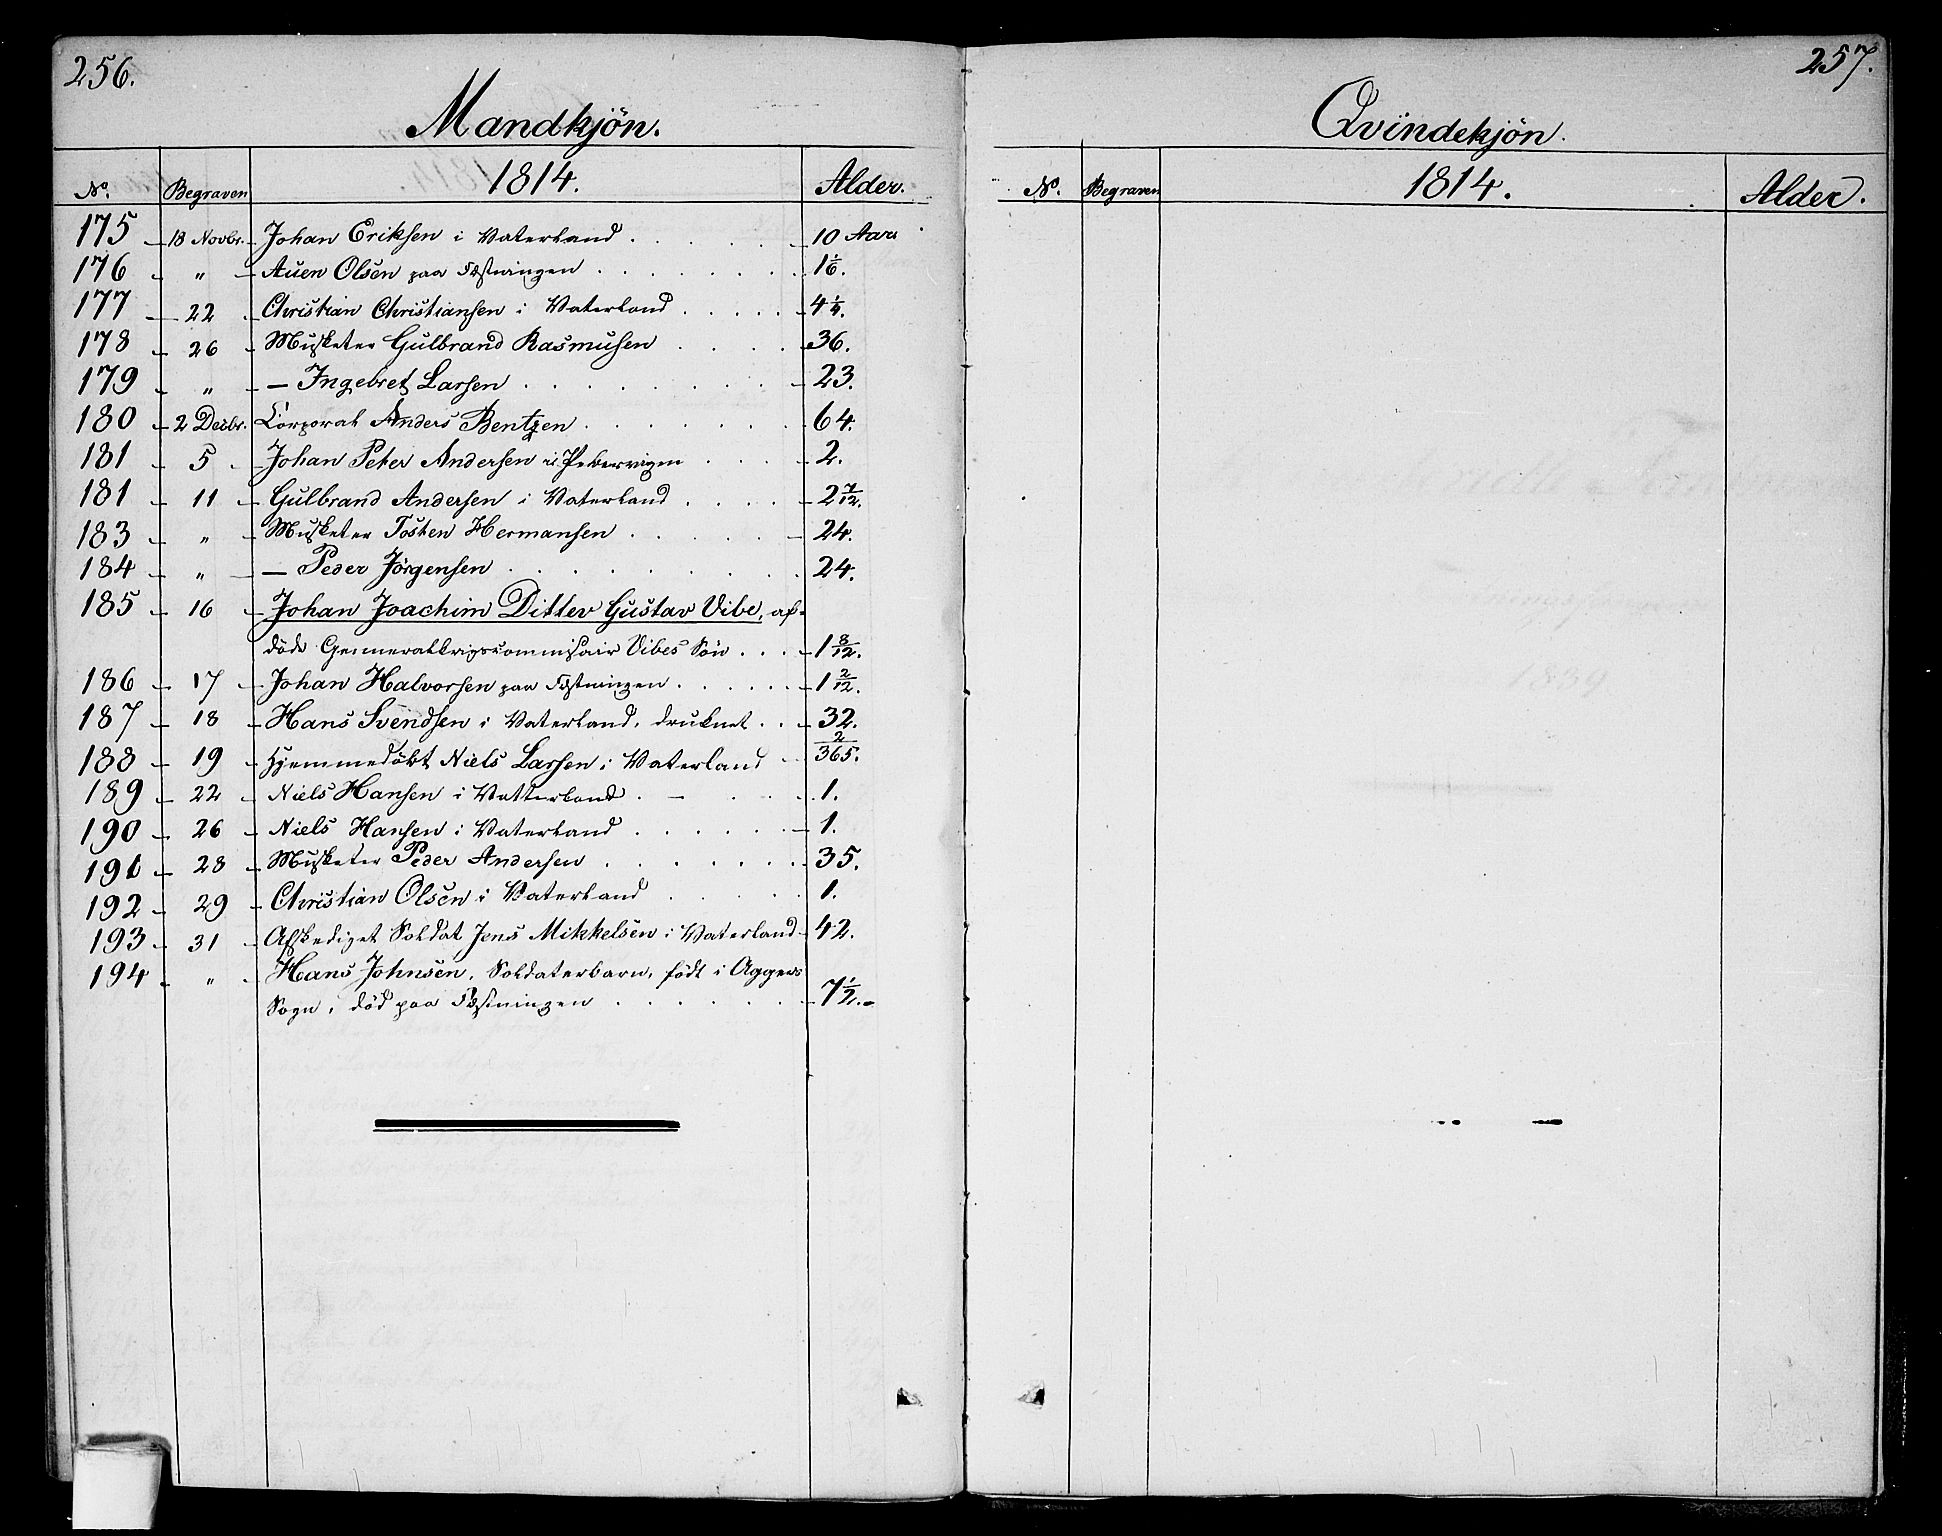 256.
Mandkjön.
No. Begraven 1814. Alder.
175 18 Novbr. Johan Eriksen i Vaterland 10 Aars
176 " Auen Olsen paa Fæstningen 1 1/6.
177 22 Christian Christiansen i Vaterland 4 1/4.
178 26 Musketer Gulbrand Rasmusen 36.
179 " — Ingebret Larsen 23.
180 2 Decbr. Corporal Anders Bentzen 64.
181 5 Johan Peter Andersen i Pebervigen 2.
181 11 Gulbrand Andersen i Vaterland 2 7/12.
183 " Musketer Tosten Hermansen 24.
184 " — Peder Jörgensen 24.
185 16 Johan Joachim Ditlev Gustav Vibe, af-
döde Genneralkrigscommisair Vibes Sön 1 8/12.
186 17 Johan Halvorsen paa Fæstningen 1 2/12.
187 18 Hans Svendsen i Vaterland, druknet 32.
188 19 Hjemmedöbt Niels Larsen i Vaterland 2/365.
189 22 Niels Hansen i Vatterland 1.
190 26 Niels Hansen i Vaterland 1.
191 28 Musketer Peder Andersen 35.
192 29 Christian Olsen i Vaterland 1.
193 31 Afskediget Soldat Jens Mikkelsen i Vaterland 42.
194 " Hans Johnsen, Soldaterbarn, födt i Aggers
Sogn, död paa Fæstningen 7 1/2.
257.
Qvindekjön.
No. Begraven 1814. Alder.